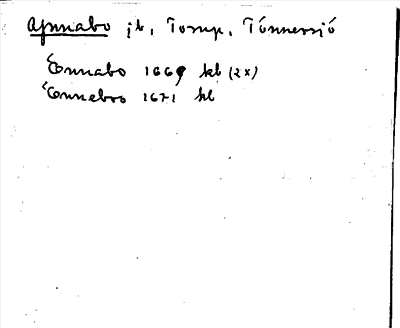 Ajnnabo jb, Torup, Tönnersjö
Ennabo 1669 kb (2x)
Ennebro 1671 kb